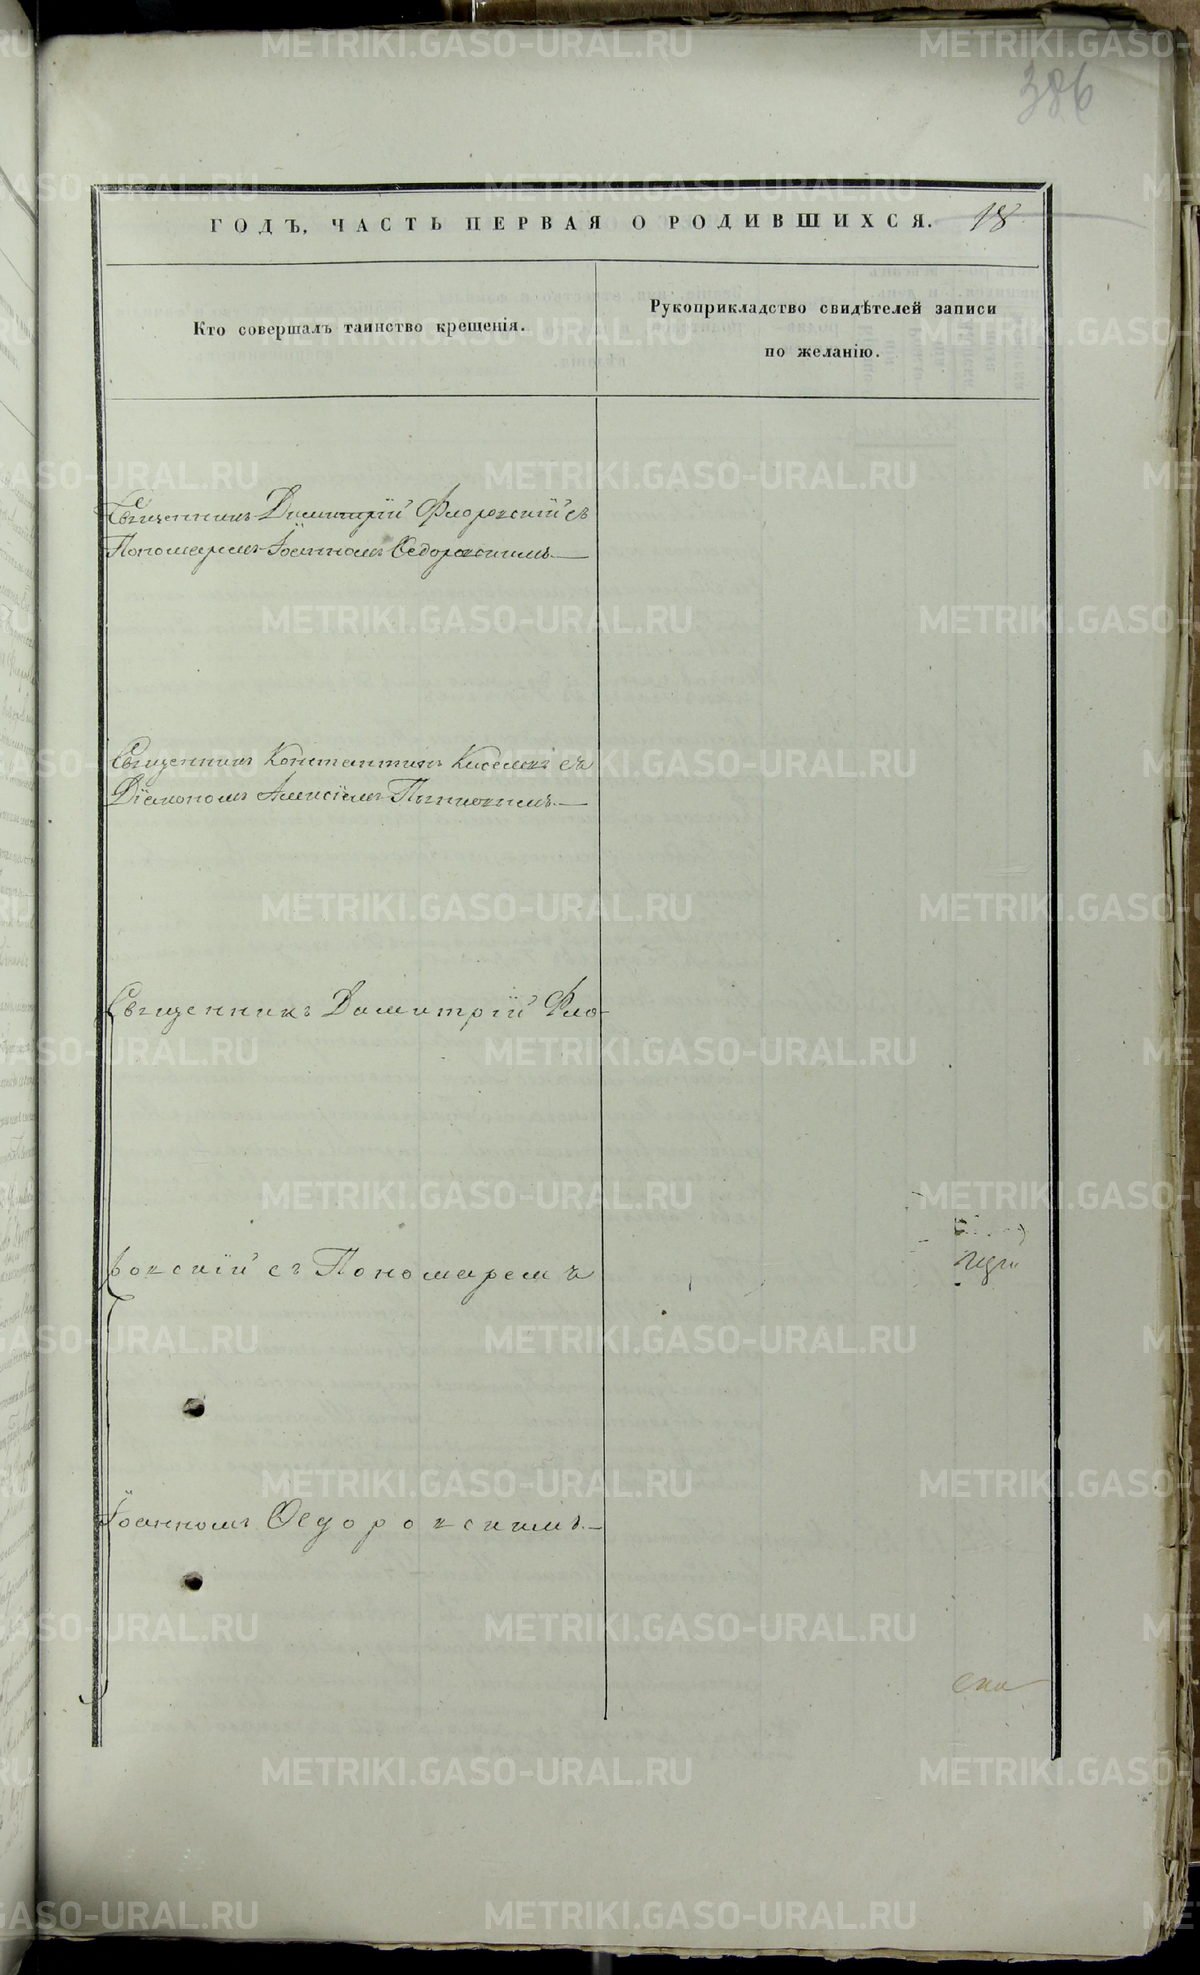 386
ГОДЪ, ЧАСТЬ ПЕРВАЯ О РОДИВШИХСЯ. 18
Кто совершалъ таинство крещенія.
Рукоприкладство свидѣтелей записи
по желанію.
Священникъ Димитрій Флоровскій съ
Пономаремъ Іоанномъ Ѳедоровскимъ.
Священникъ Константинъ Киселевъ съ
Діакономъ Алексіемъ
Священникъ Димитрій Фло-
ровскій съ Пономаремъ
Іоанномъ Ѳедоровскимъ.
METRIKI.GASO-URAL.RU